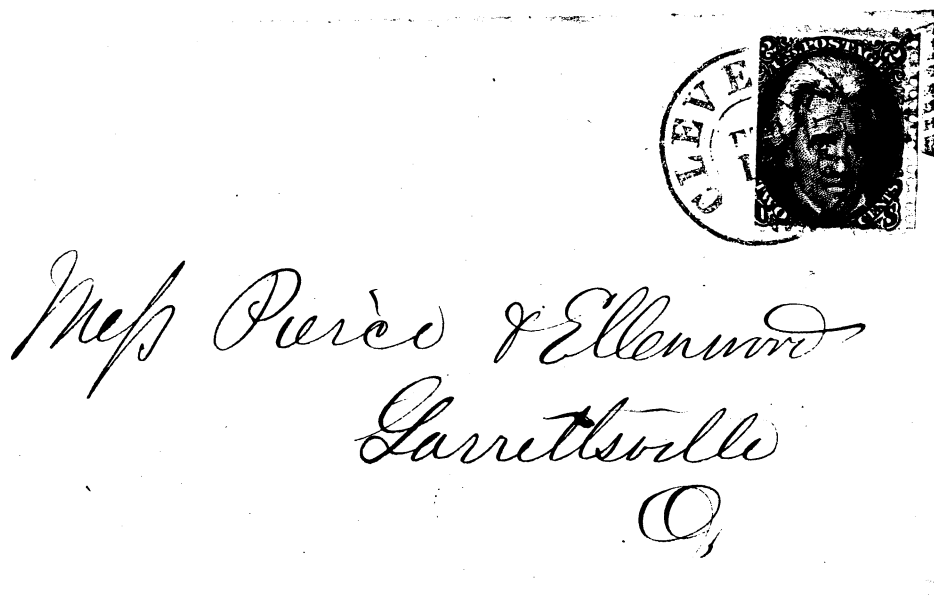 CLEVE
U.S. POSTAGE
TWO CENTS
Mess Pierce & Ellenwood
Garrettsville
O,